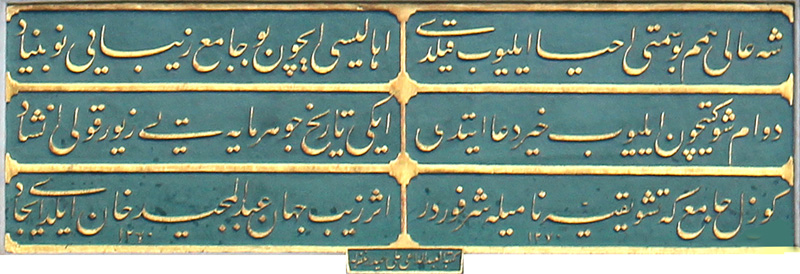 شه عالی همم بو سمتی احیا ایلیوب قیلدی اهالیسی ایچون بو جامع زیبایی نو بنیاد
دوام شوکتیچون ایلیوب خیر دعا ایتدی ایکی تاریخ جوهرمایه بیتی زیور قولی انشاد
کوزل جامع که تشویقیه نامیله شرفوردر ۱۲۷۰ اثر زیب جهان عبدالمجید خان ایلدی ایجاد ۱۲۷۰
کتبه العبد الداعی علی حیدر غفرله